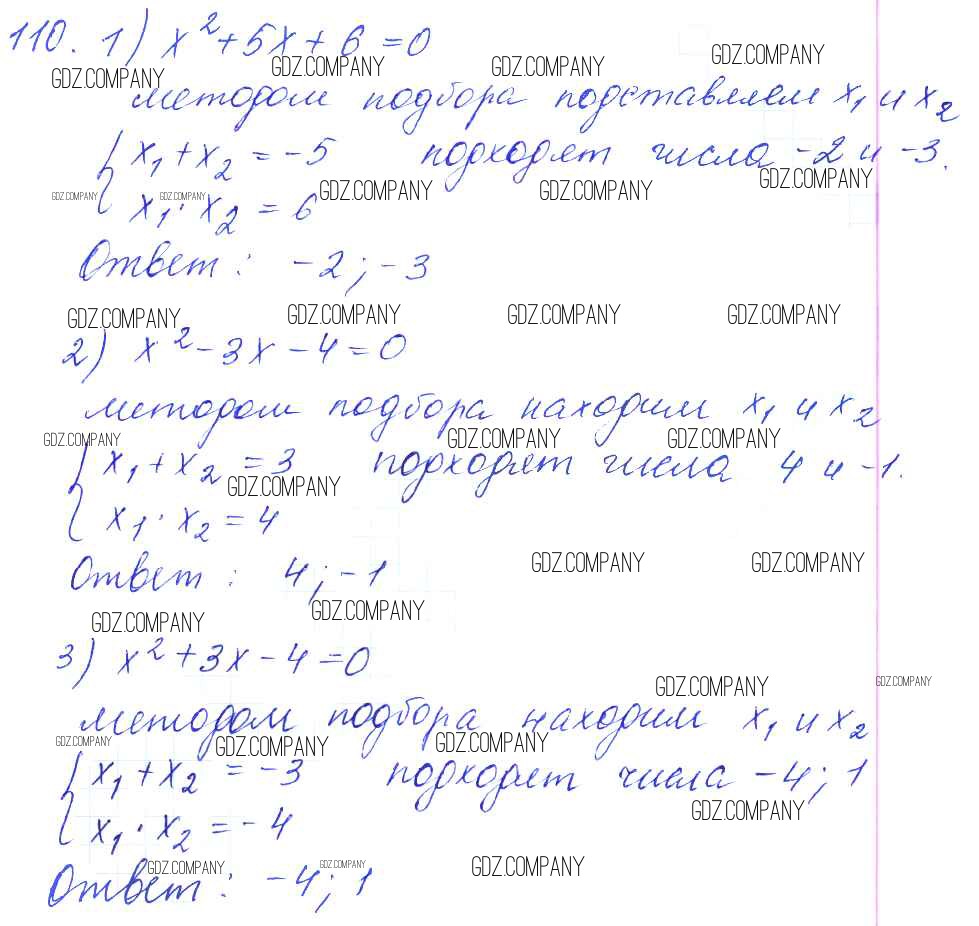 110. 1) x² + 5x + 6 = 0
GDZ.COMPANY GDZ.COMPANY GDZ.COMPANY GDZ.COMPANY
методом подбора подставляем x₁ и x₂
{ x₁ + x₂ = -5 подходят числа -2 и -3.
GDZ.COMPANY GDZ.COMPANY GDZ.COMPANY GDZ.COMPANY GDZ.COMPANY
x₁ · x₂ = 6
Ответ: -2; -3
GDZ.COMPANY GDZ.COMPANY GDZ.COMPANY GDZ.COMPANY
2) x² - 3x - 4 = 0
методом подбора находим x₁ и x₂
GDZ.COMPANY GDZ.COMPANY GDZ.COMPANY
{ x₁ + x₂ = 3 подходят числа 4 и -1.
GDZ.COMPANY
x₁ · x₂ = 4
GDZ.COMPANY GDZ.COMPANY
Ответ: 4; -1
GDZ.COMPANY GDZ.COMPANY
3) x² + 3x - 4 = 0
GDZ.COMPANY GDZ.COMPANY
методом подбора находим x₁ и x₂
GDZ.COMPANY GDZ.COMPANY GDZ.COMPANY
{ x₁ + x₂ = -3 подходят числа -4; 1
GDZ.COMPANY
x₁ · x₂ = -4
GDZ.COMPANY GDZ.COMPANY GDZ.COMPANY
Ответ: -4; 1